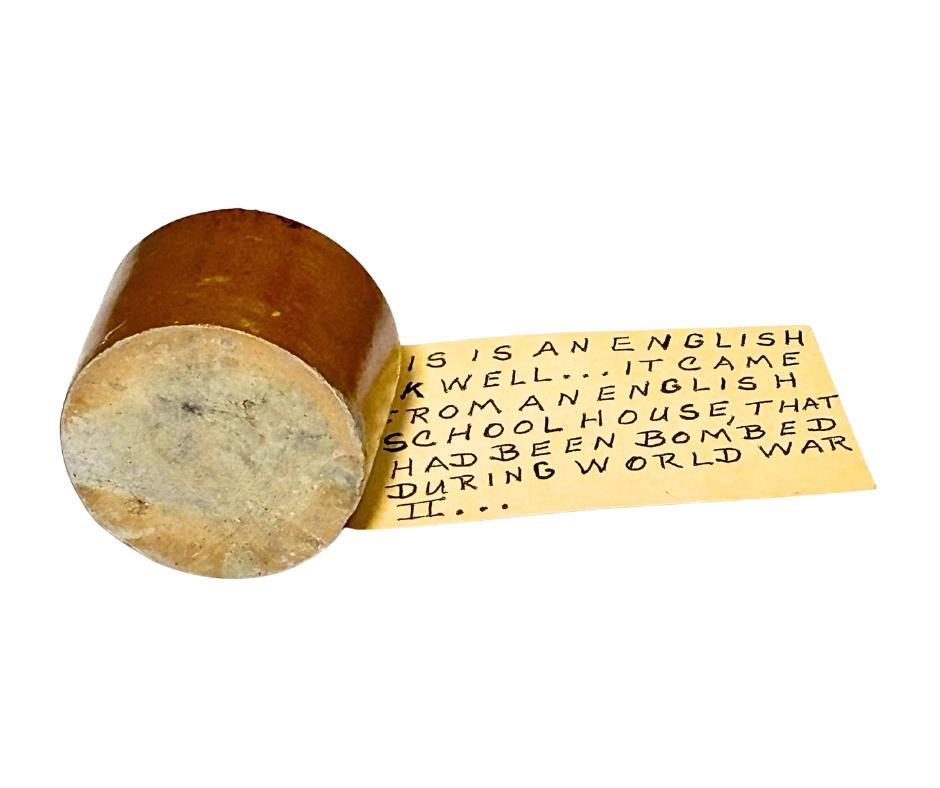 IS IS AN ENGLISH
K WELL... IT CAME
FROM AN ENGLISH
SCHOOL HOUSE, THAT
HAD BEEN BOMBED
DURING WORLD WAR
II...